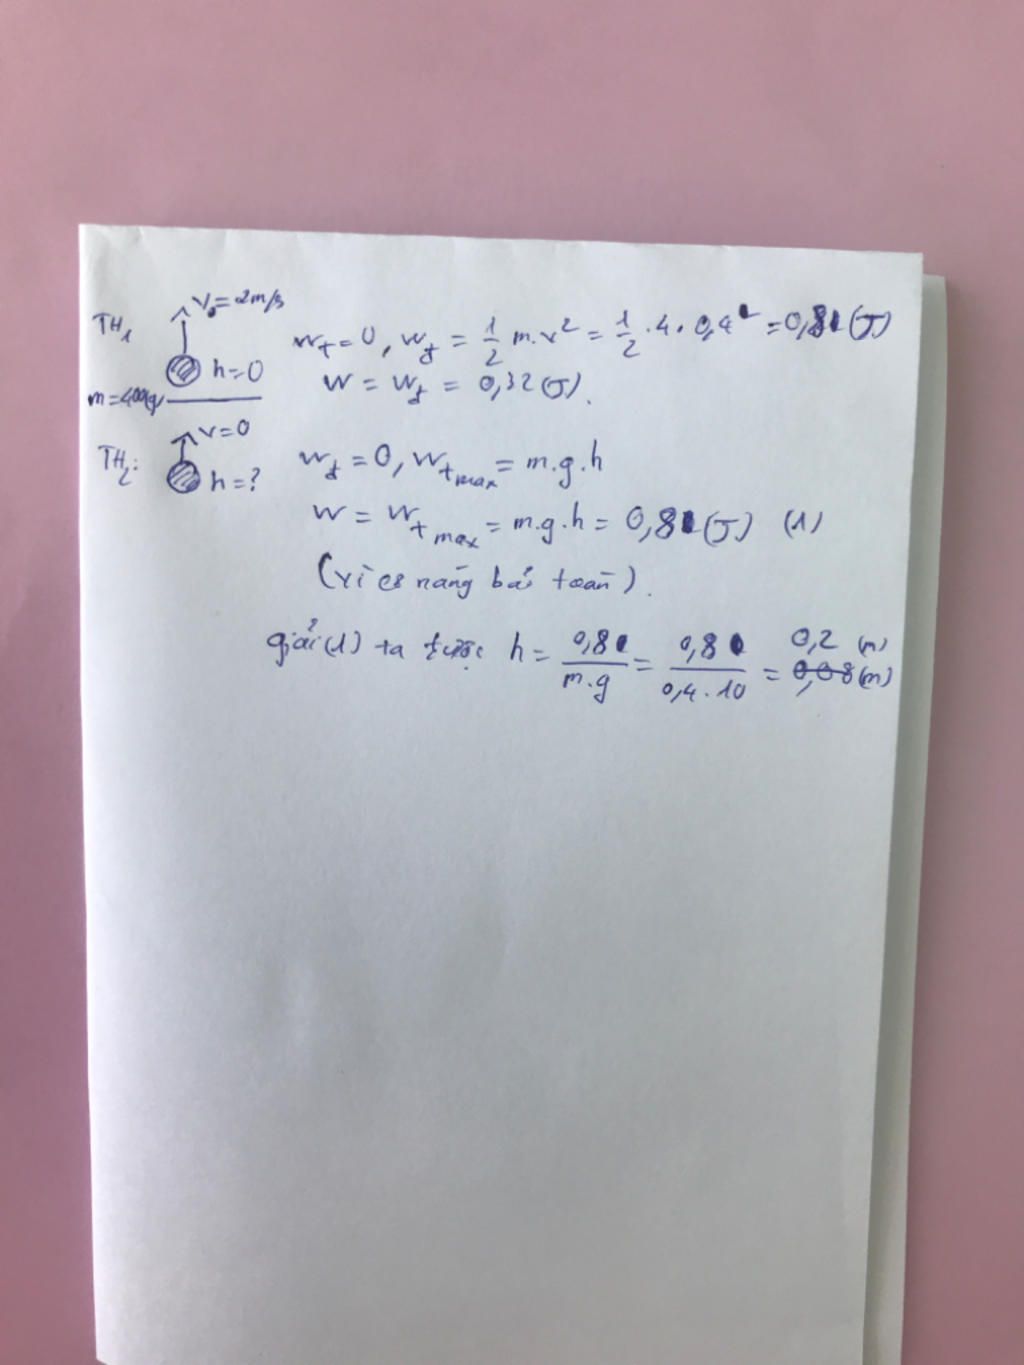 TH₁ V₀ = 2m/s
h = 0
m = 400g
Wt = 0, Wđ = 1/2 m.v² = 1/2 . 4 . 0,4 = 0,8 (J)
W = Wđ = 0,32 (J).
TH₂: v = 0
h = ?
Wđ = 0, Wt max = m.g.h
W = Wt max = m.g.h = 0,8 (J) (1)
(vì cơ năng bảo toàn).
giải (1) ta được h = 0,8/m.g = 0,8/0,4.10 = 0,2 (m)
0,08 (m)